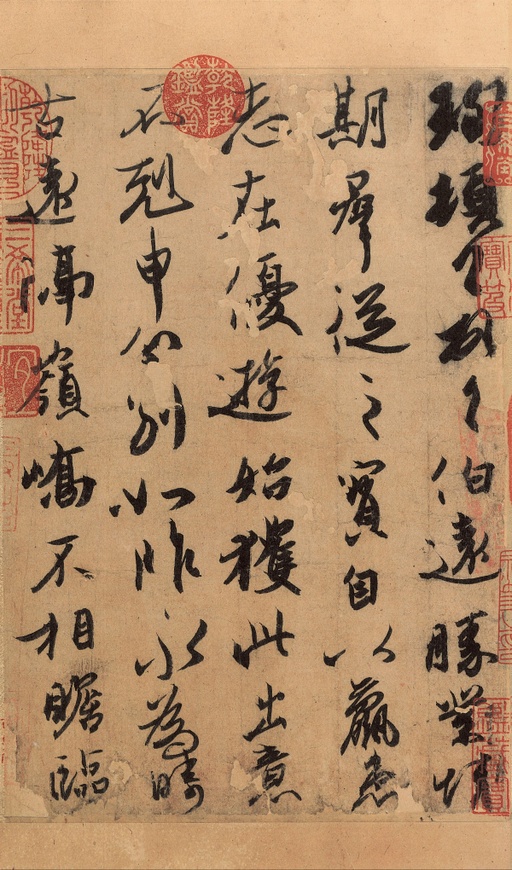 珣頓首頓首伯遠勝業情
期群從之寶自以羸患
志在優遊始獲此出意
不剋申分別如昨永為疇
古遠隔嶺嶠不相瞻臨
乾隆鑑賞